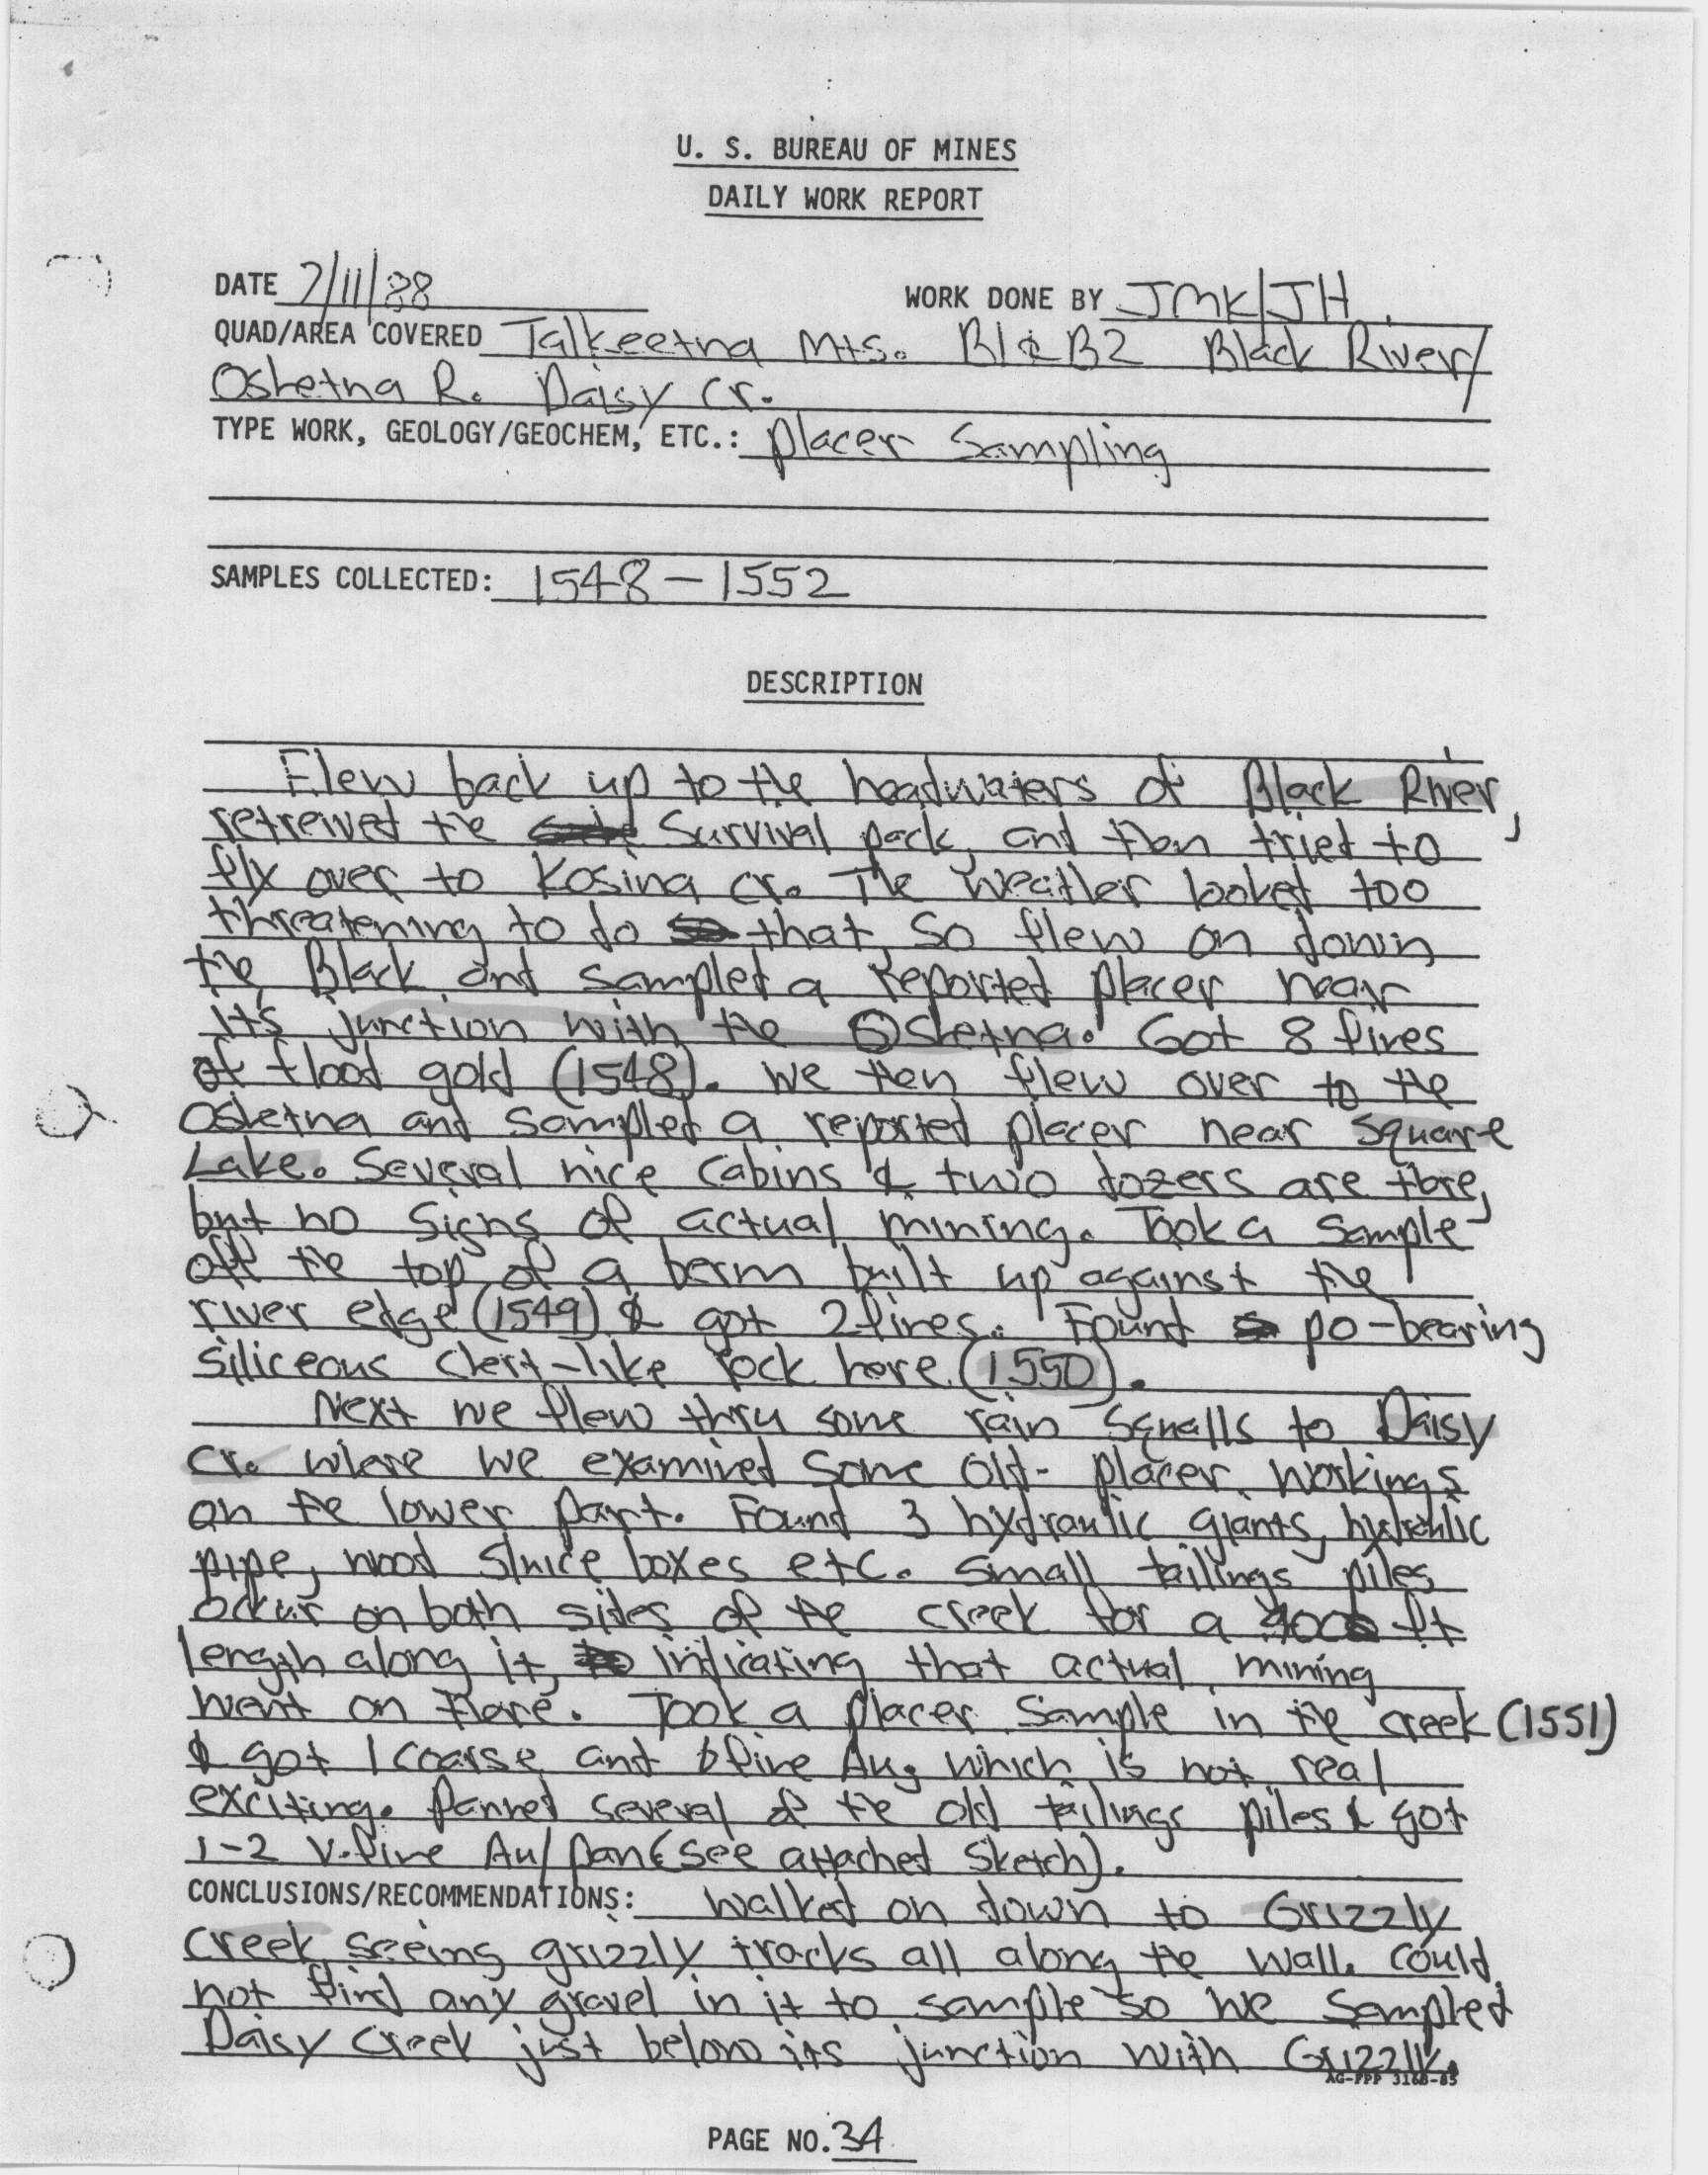 U. S. BUREAU OF MINES
DAILY WORK REPORT
DATE 7/11/88 WORK DONE BY JMK/JH.
QUAD/AREA COVERED Talkeetna Mts. B1 & B2 Black River/
Oshetna R. Daisy Cr.
TYPE WORK, GEOLOGY/GEOCHEM, ETC.: Placer Sampling
SAMPLES COLLECTED: 1548-1552
DESCRIPTION
Flew back up to the headwaters of Black River,
retreived the survival pack, and then tried to
fly over to Kosina Cr. The weather looked too
threatening to do that, so flew on down
the Black and sampled a reported placer near
its junction with the Oshetna. Got 8 fines
of flood gold (1548). We then flew over to the
Oshetna and sampled a reported placer near Square
Lake. Several nice cabins & two dozers are there,
but no signs of actual mining. Took a sample
off the top of a berm built up against the
river edge (1549) & got 2 fines. Found po-bearing
siliceous chert-like rock here (1550).
Next we flew thru some rain squalls to Daisy
Cr. where we examined some old- placer workings
on the lower part. Found 3 hydraulic giants, hydraulic
pipe, wood sluice boxes etc. Small tailings piles
occur on both sides of the creek for a ft
length along it, indicating that actual mining
went on there. Took a placer sample in the creek (1551)
& got 1 coarse and 6 fine Au, which is not real
exciting. Panned several of the old tailings piles & got
1-2 v. fine Au/pan (see attached sketch).
CONCLUSIONS/RECOMMENDATIONS: Walked on down to Grizzly
Creek seeing grizzly tracks all along the wall. Could
not find any gravel in it to sample so we sampled
Daisy Creek just below its junction with Grizzly.
AG-FPP 3168-85
PAGE NO. 34